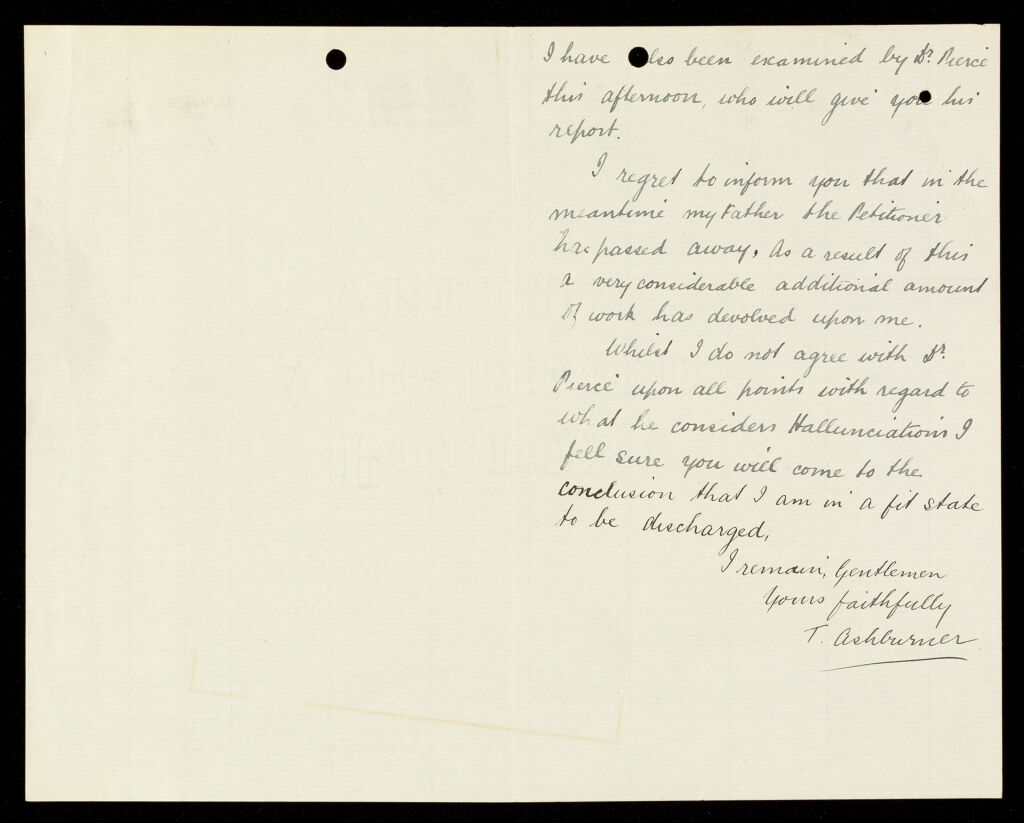 I have also been examined by Dr. Pierce
this afternoon, who will give you his
report.
I regret to inform you that in the
meantime my Father the Petitioner
has passed away. As a result of this
a very considerable additional amount
of work has devolved upon me.
Whilst I do not agree with Dr.
Pierce upon all points with regard to
what he considers Hallunciations I
fell sure you will come to the
conclusion that I am in a fit state
to be discharged,
I remain, Gentlemen
Yours faithfully
T. Ashburner